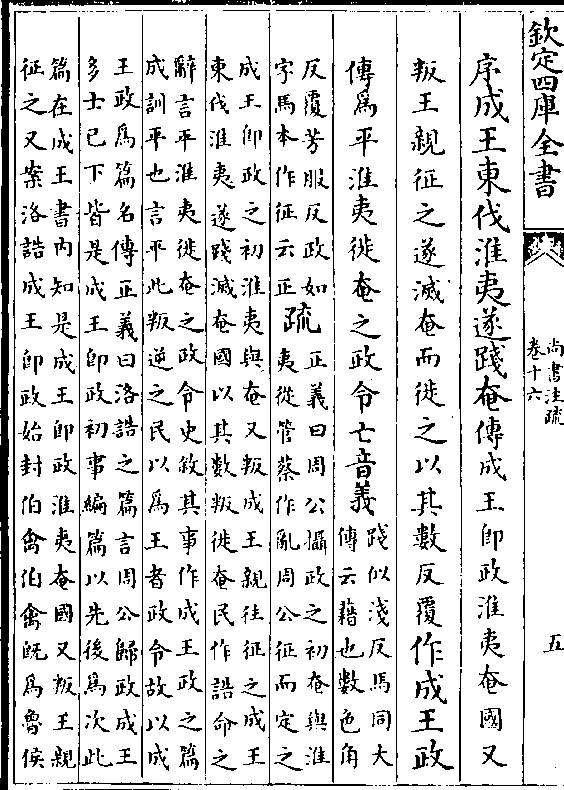 欽定四庫全書
尚書注疏
卷十六
五
序成王東伐淮夷遂踐奄傳成王卽政淮夷奄國又
叛王親征之遂滅奄而徙之以其數反覆作成王政
傳爲平淮夷徙奄之政令亡音義
踐似淺反馬同大
傳云藉也數色角
反覆芳服反政如
字馬本作征云正
疏
正義曰周公攝政之初奄與淮
夷從管蔡作亂周公征而定之
成王卽政之初淮夷與奄又叛成王親往征之成王
東伐淮夷遂踐滅奄國以其數叛徙奄民作誥命之
辭言平淮夷徙奄之政令史敘其事作成王政之篇
成訓平也言平此叛逆之民以爲王者政令故以成
王政爲篇名傳正義曰洛誥之篇言周公歸政成王
多士已下皆是成王卽政初事編篇以先後爲次此
篇在成王書內知是成王卽政淮夷奄國又叛王親
征之又案洛誥成王卽政始封伯禽伯禽旣爲魯侯